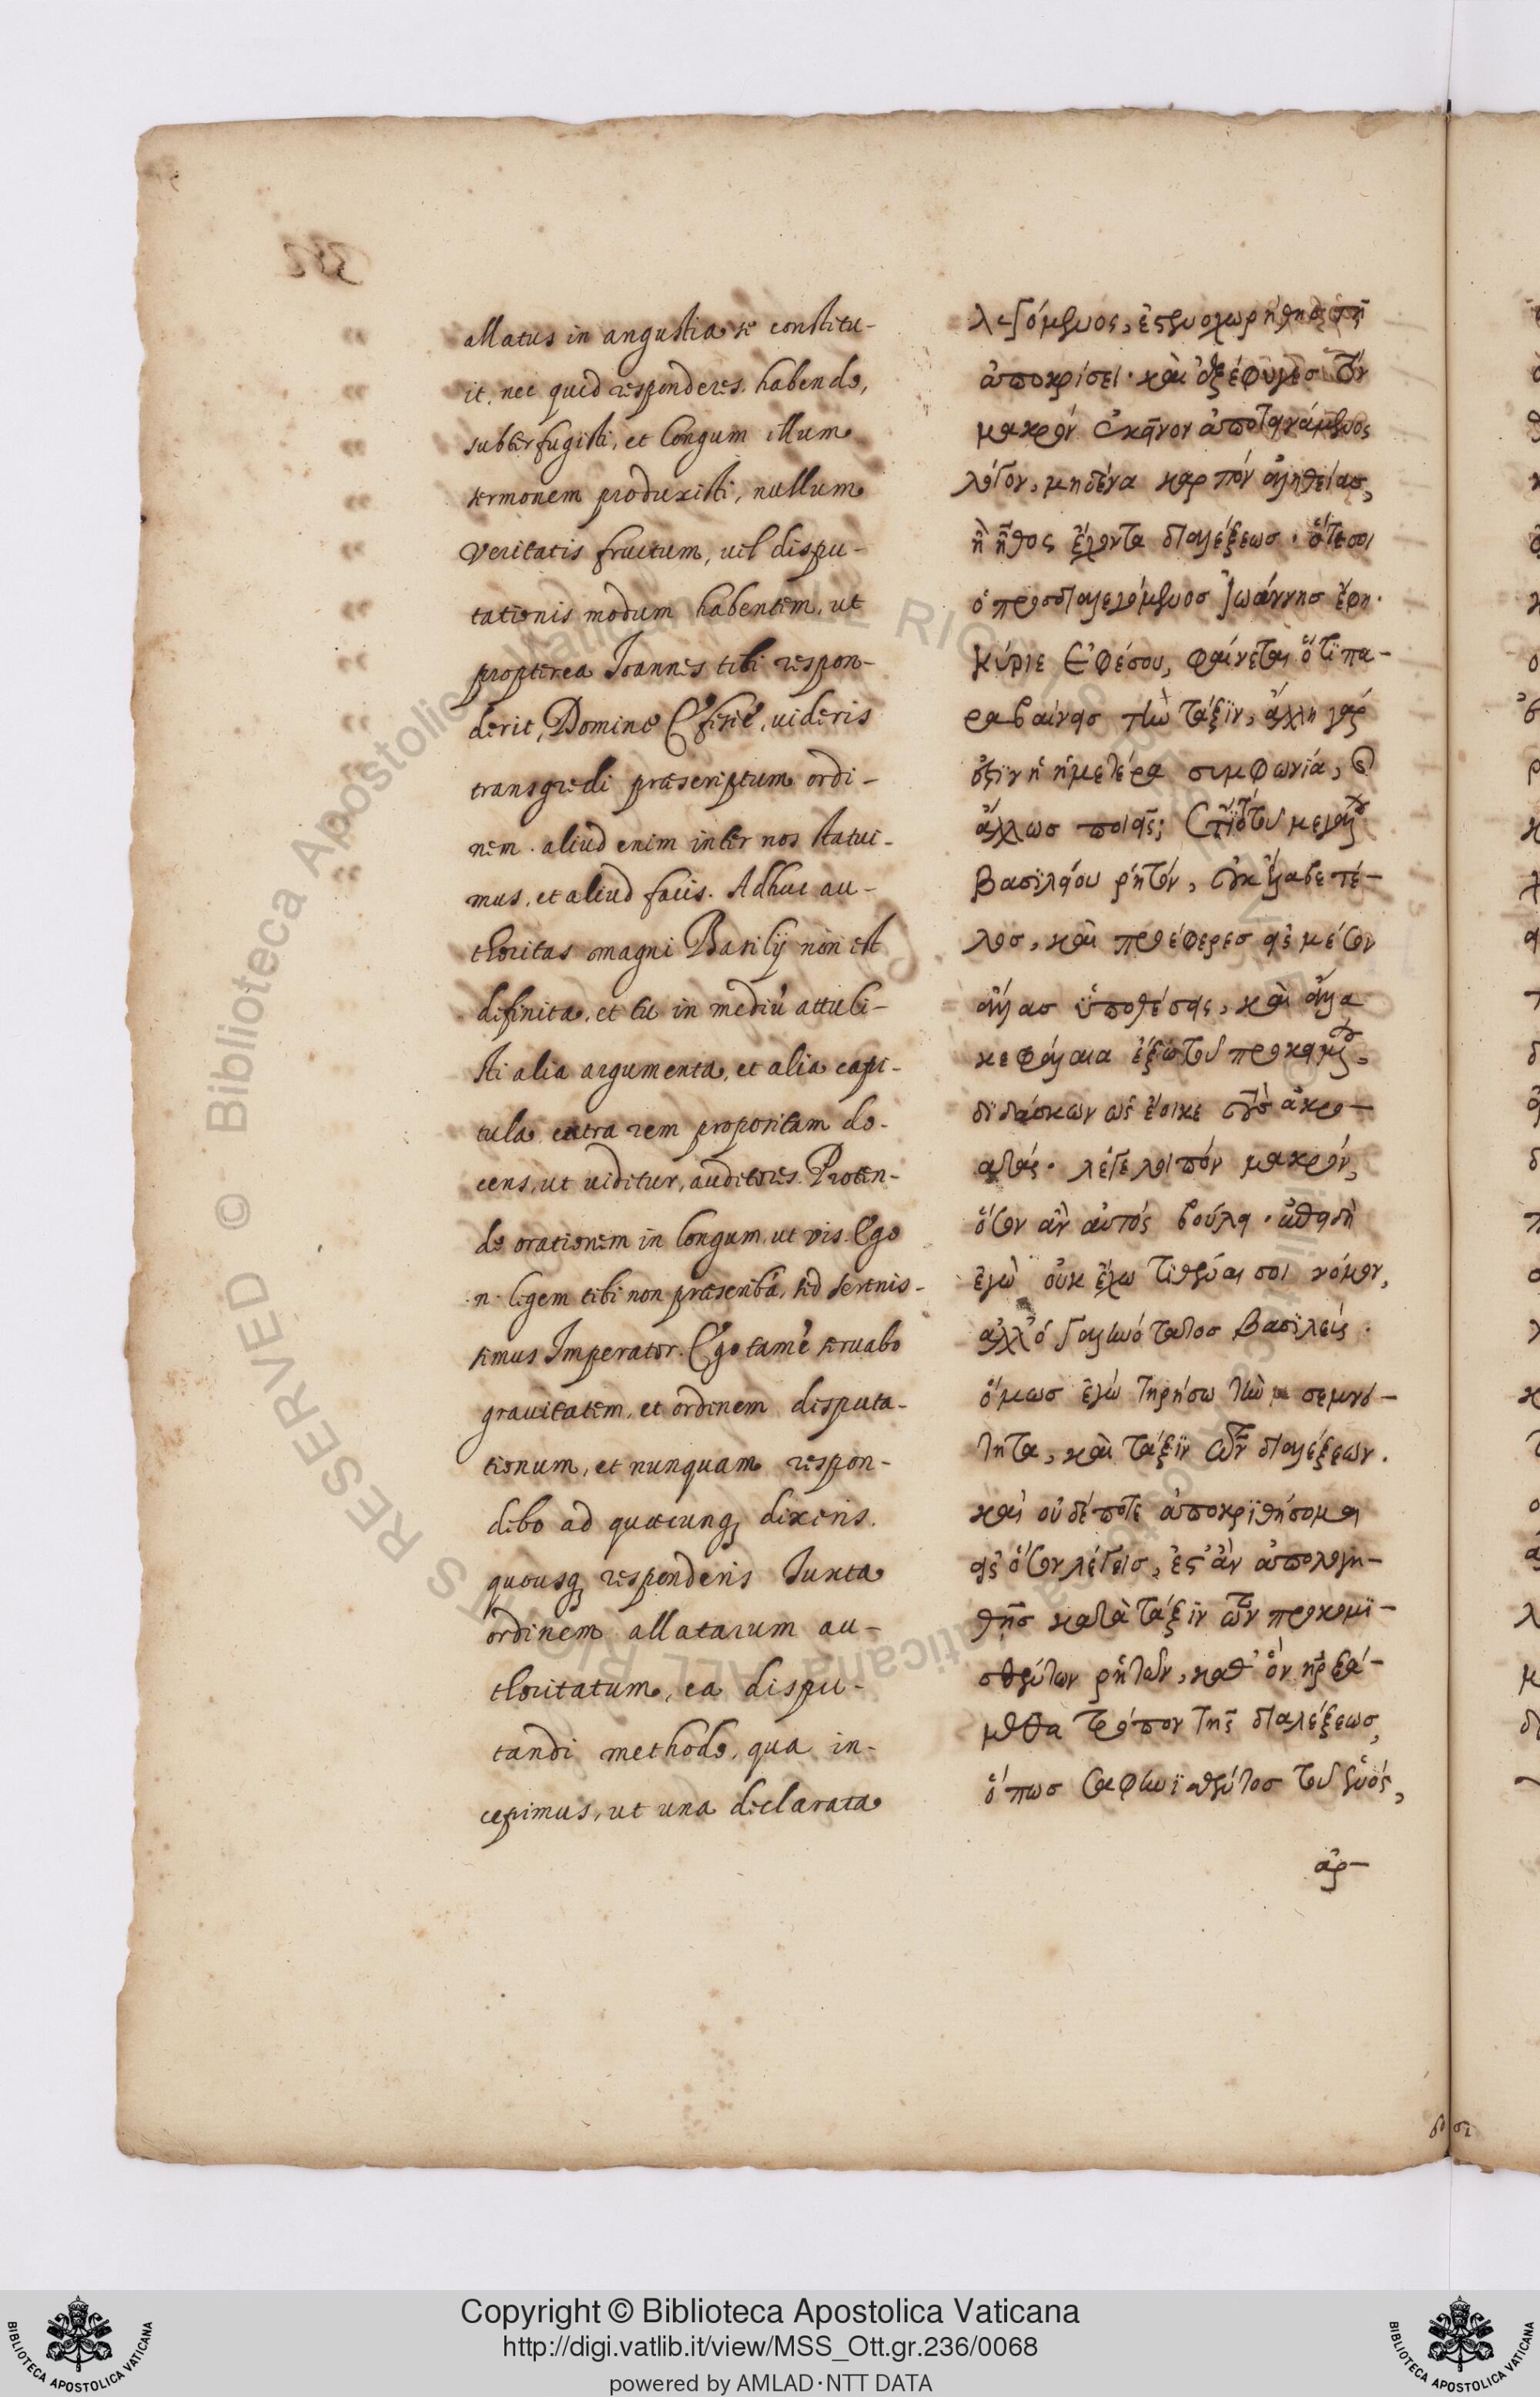 allatus in angustia se constitu-
it. nec quid responderes. habendo,
subterfugisti, et longum illum
sermonem produxisti, nullum
veritatis fructum, vel dispu-
tationis modum habentem, ut
propterea Joannes tibi respon-
derit, Domine Efesie, videris
transgredi præscriptum ordi-
nem. aliud enim inter nos statui-
mus, et aliud facis. Adhuc au-
thoritas magni Basilij non est
difinita, et tu in mediũ attuli-
sti alia argumenta, et alia capi-
tula extra rem propositam do-
cens, ut viditur, auditores. Proten-
de orationem in longum, ut vis. Ego
n. ligem tibi non præscribã, sed serenis-
simus Imperator. Ego tamẽ servabo
gravitatem, et ordinem disputa-
tionum, et nunquam respon-
debo ad quæcunq; dixeris.
quousq; responderis Iuxta
ordinem allatarum au-
thoritatum, ea dispu-
tandi methodo, qua in-
cepimus, ut una declarata
ἀποκρίσει· καὶ ἐξέφυγες τὸν
μακρόν ἐκεῖνον
λόγον, μηδένα καρπόν ἀληθείας,
ἢ ἦθος ἔχοντα διαλέξεως· ὅτε σοι
ὁ προσδιαλεγόμενος Ἰωάννης ἔφη·
κύριε Ἐφέσου, φαίνεται ὅτι πα-
ραβαίνεις τὴν τάξιν, ἄλλη γάρ
ἐστιν ἡ ἡμετέρα συμφωνία, καὶ
ἄλλως ποιεῖς; ἔτι τὸ τοῦ μεγάλου
Βασιλείου ῥητόν, οὐκ ἔλαβε τέ-
λος, καὶ προέφερες εἰς μέσον
ἄλλας ὑποθέσεις, καὶ ἄλλα
κεφάλαια ἔξω τοῦ προκειμένου,
διδάσκων ὡς ἔοικε τοὺς ἀκρο-
ατάς. λέγε λοιπόν μακρόν,
ὅσον ἂν αὐτός βούλει· ἐπειδὴ
ἐγὼ οὐκ ἔχω τιθέναι σοι νόμον,
ἀλλ' ὁ γαληνότατος βασιλεύς.
ὅμως ἐγώ τηρήσω τὴν σεμνό-
τητα, καὶ τάξιν τῶν διαλέξεων.
καὶ οὐδέποτε ἀποκριθήσομαι
εἰς ὅσον λέγεις, ἔς ἂν ἀπολογη-
θῇς κατὰ τάξιν τῶν προκομι-
σθέντων ῥητῶν, καθ' ὅν ἠρξά-
μεθα τρόπον τῆς διαλέξεως,
ὅπως σαφηνισθέντος τοῦ ἑνός,
ἀρ-
Copyright © Biblioteca Apostolica Vaticana
http://digi.vatlib.it/view/MSS_Ott.gr.236/0068
powered by AMLAD·NTT DATA